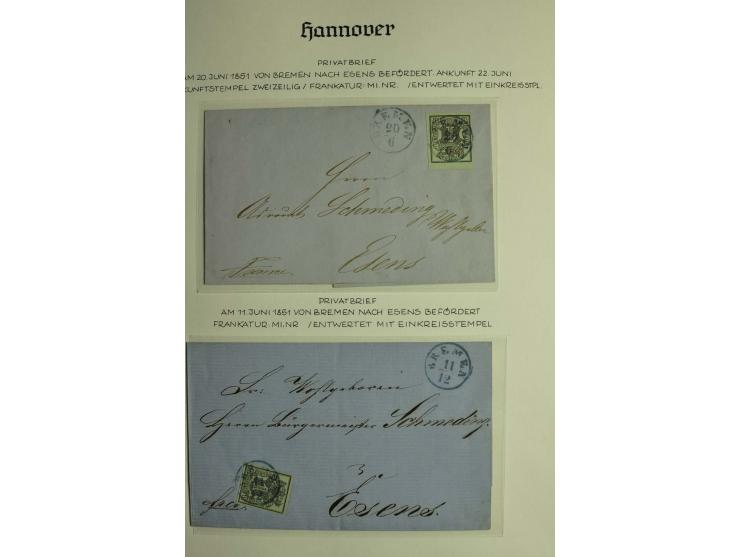 Hannover
PRIVATBRIEF
AM 20. JUNI 1851 VON BREMEN NACH ESENS BEFÖRDERT. ANKUNFT 22. JUNI
KUNFTSTEMPEL ZWEIZEILIG / FRANKATUR: MI. NR. /ENTWERTET MIT EINKREISSTPL.
BREMEN
20
6
Herrn
Schmeding
Esens
PRIVATBRIEF
AM 11. JUNI 1861 VON BREMEN NACH ESENS BEFÖRDERT
FRANKATUR: MI. NR /ENTWERTET MIT EINKREISSTEMPEL
BREMEN
11
12
Sr: Wohlgeboren
Herrn Bürgermeister Schmeding.
Esens.